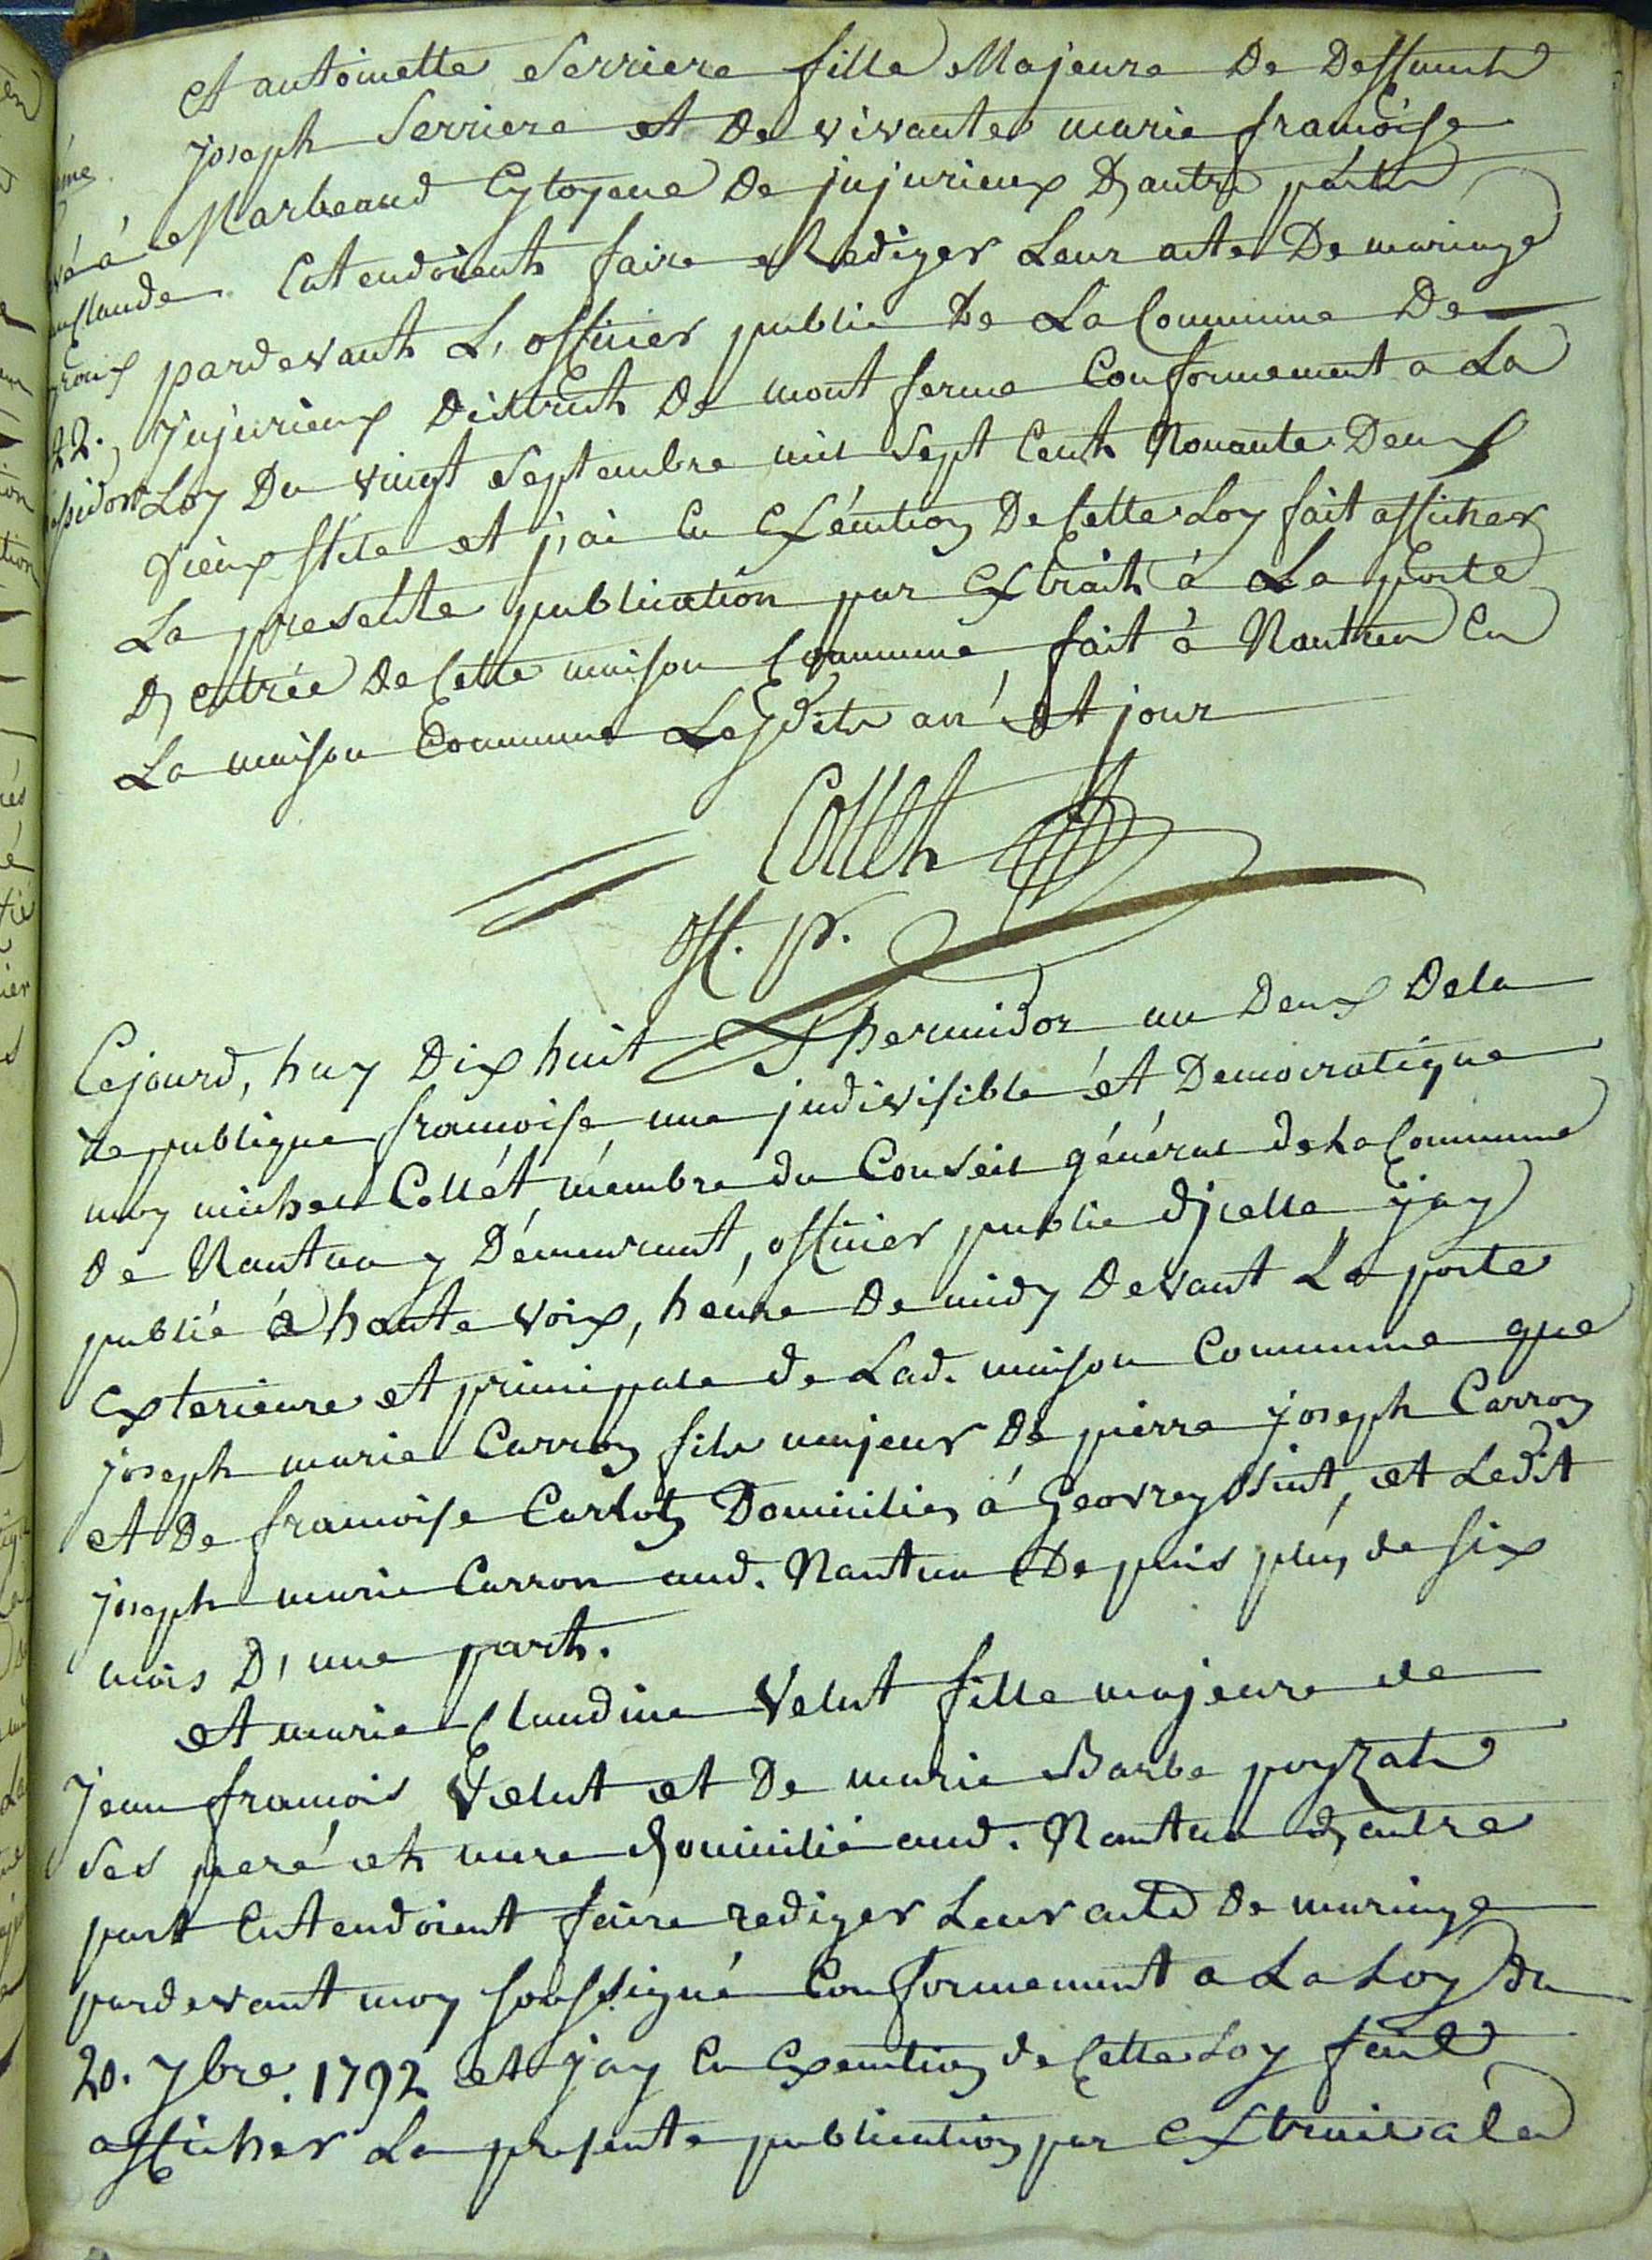 et antoinette Serriere fille Majeure De Deffunt
joseph Serriere et De vivante marie françoise
Marbeaud Cytoyene De jujurieux D'autre part
Entendoient faire Rediger Leur acte De mariage
pardevant L'officier public De La Commune De
jujurieux District De mont ferme Conformement a La
Loy Du vingt Septembre mil Sept Cent Nonante Deux
vieux stile et j'ai En Exécution De Cette Loy fait afficher
La presente publication par Extrait à La porte
D'entrée De Cette maison Commune, fait à Nantua En
La maison Commune Lesdits an et jour
Collet
off. p.
Cejourd'huy Dix huit Thermidor an Deux Dela
republique françoise une jndivisible et Democratique
moy michel Collét membre du Conseil général de La Commune
De Nantua y Démeurant, officier public d'icelle jay
publié à haute voix, heure De midy Devant La porte
Exterieure et principale de Lad. maison Commune que
joseph marie Carron fils majeur De pierre joseph Carron
et De françoise Carlot Domiciliés à Geovreyssiat, et Ledit
joseph marie Carron aud. Nantua Depuis plus de six
mois D'une part.
et marie Claudine Velut fille majeure de
Jean françois Velut et De marie Barbe poyzat
ses peré et mere Domicilié aud. Nantua d'autre
part Entendoient faire rediger Leur acte De mariage
pardevant moy soussigné Conformement a La Loy du
20. 7bre. 1792 et jay En Execution de Cette Loy fait
afficher La presente publication par Extrait a la